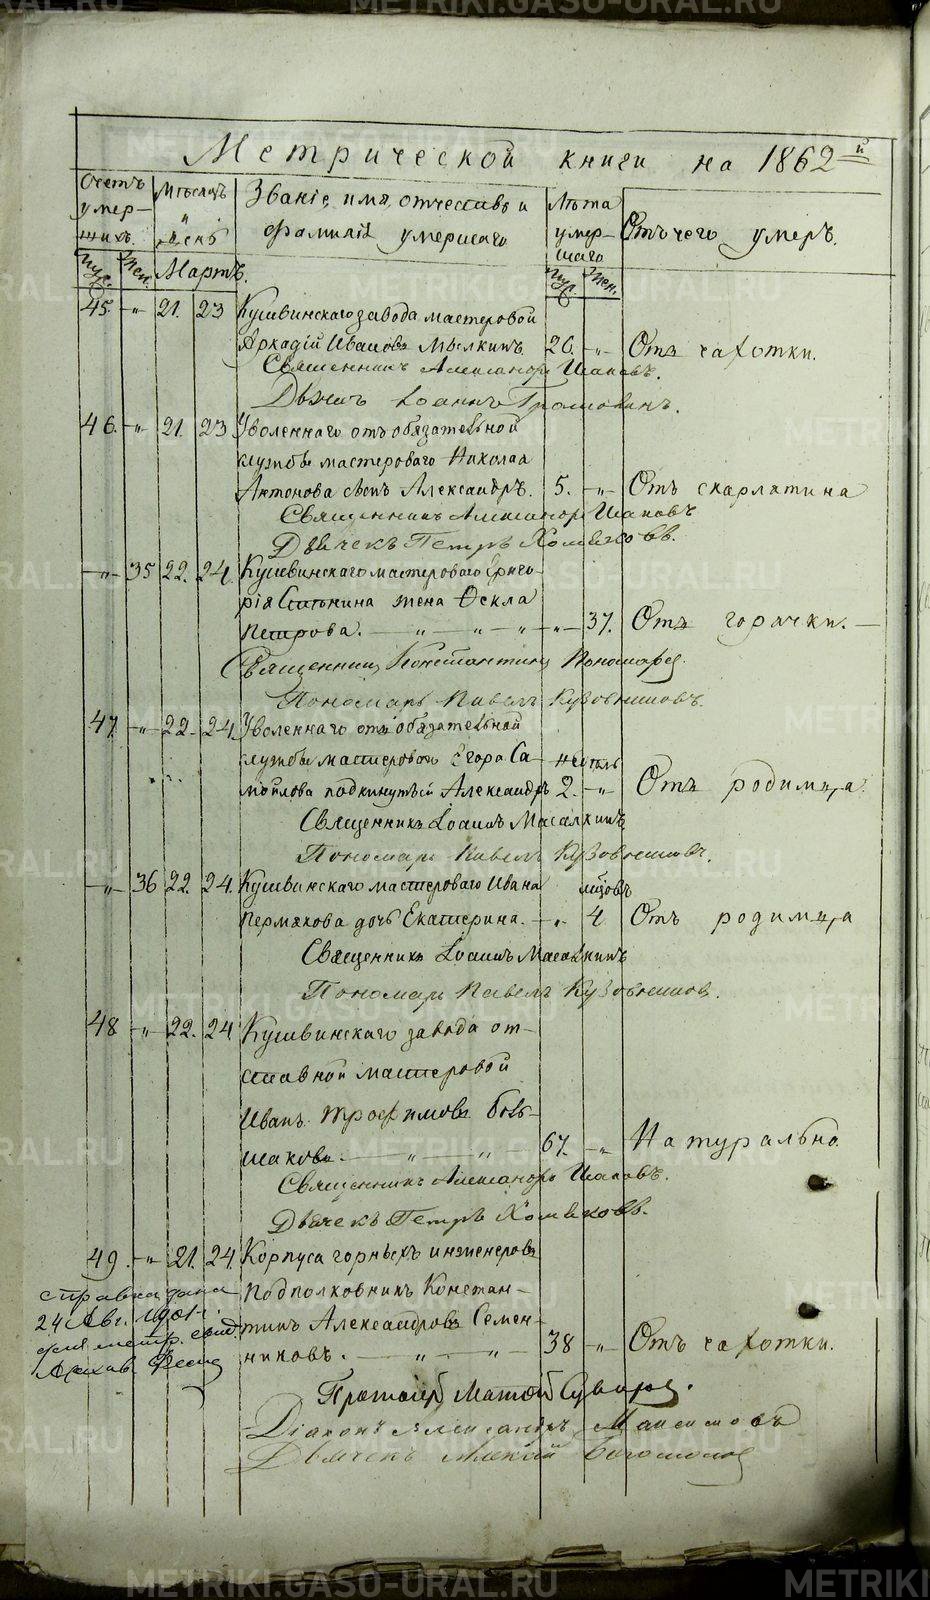 Метрической книги на 1862й
Счетъ умер-шихъ. Мѣсяцъ и день Званіе, имя, отчество и фамилія умершаго Лѣта умер-шаго Отъ чего умеръ.
Муж. Жен. Мартъ. Муж. Жен.
45. -„- 21. 23 Кушвинскаго завода мастеровой
Аркадій Ивановъ Мылкинъ. 26. -„- Отъ чахотки.
Священникъ Александръ Шаповъ.
Дьячекъ Іоаннъ
46. -„- 21. 23 Уволеннаго отъ обязательной
службы мастероваго Николая
Антонова сынъ Александръ. 5. -„- Отъ скарлатина
Священникъ Александръ Шаповъ
Дьячекъ Петръ Хомяковъ.
-„- 35 22. 24. Кушвинскаго мастероваго Григо-
рія жена Ѳекла
Петрова. — „ — „ — „ -„- 37. Отъ горячки. —
Священникъ Константинъ Пономаревъ.
Пономарь Павелъ Кузовниковъ.
47. -„- 22. 24. Уволеннаго отъ обязательной
службы мастероваго Егора Са- недѣль
мойлова подкинутый Александръ 2. -„- Отъ родимца.
Священникъ Іоаннъ Масалкинъ
Пономарь Павелъ Кузовниковъ.
-„- 36 22. 24. Кушвинскаго мастероваго Ивана мѣсяцовъ
Пермякова дочь Екатерина. -„- 4 Отъ родимца
Священникъ Іоаннъ Масалкинъ
Пономарь Павелъ Кузовниковъ.
48 -„- 22. 24 Кушвинскаго завода от-
ставной мастеровой
Иванъ Трофимовъ Боль-
шаковъ. — „ — „ — 67. -„- Натурально.
Священникъ Александръ Шаповъ.
Дьячекъ Петръ Хомяковъ.
49. -„- 21. 24. Корпуса горныхъ инженеровъ
Подполковникъ Констан-
тинъ Александровъ Семен-
никовъ. — „ — „ — 38 -„- Отъ чахотки.
справка дана
24 Авг.
для метр. свид.
Архив.
Протоіерей
Діаконъ Александръ Максимовъ
Дьячекъ Алексій Богомоловъ
METRIKI.GASO-URAL.RU